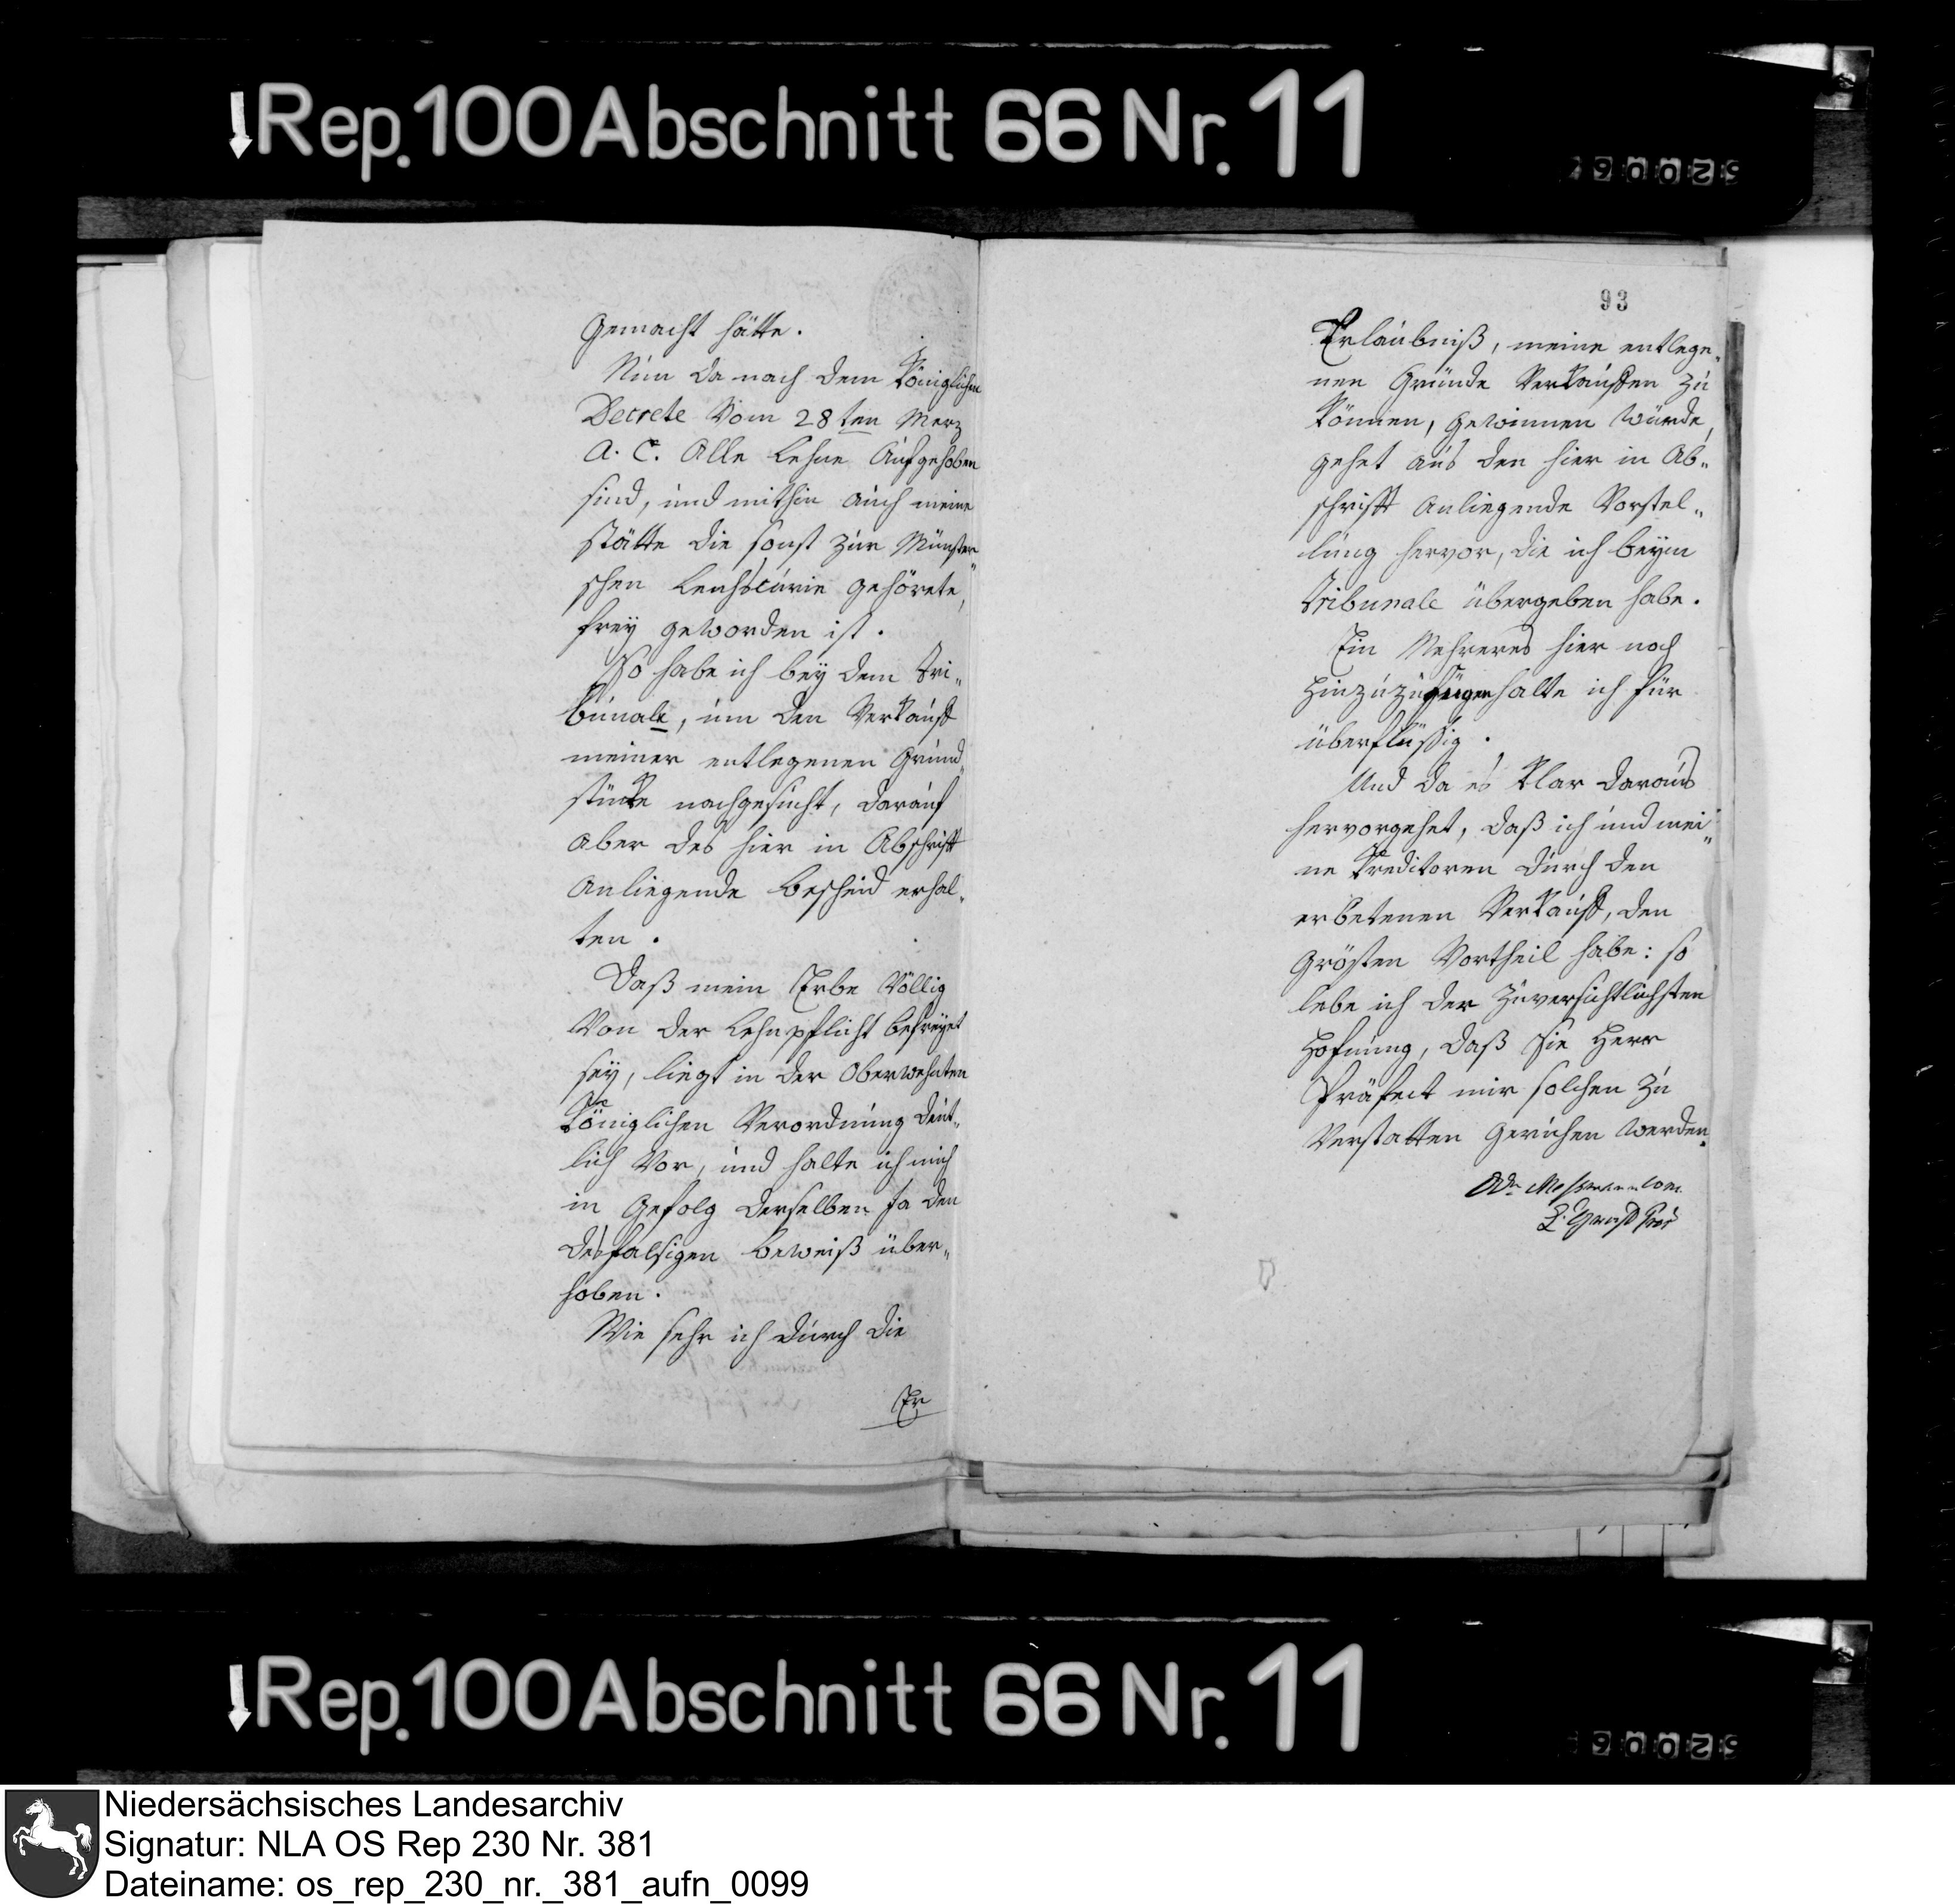 Rep. 100 Abschnitt 66 Nr. 11
gemacht hätte.
Nun da nach dem Königlichen
Decrete vom 28ten Merz
a. c. alle Lehne aufgehoben
sind, und mithin auch meine
Stätte die sonst zur Münster„
schen Lenhscurie gehörete,
frey geworden ist.
So habe ich bey dem Tri„
bunale, um den Verkauff
meiner entlegenen Grund„
stücke nachgesucht, darauf
aber des hier in Abschrifft
anliegende Bescheid erhal„
ten.
Daß mein Erbe völlig
von der Lehnpflicht befreyet
sey, liegt in der oberwehnten
Königlichen Verordnung deut„
lich vor, und halte ich mich
in Gefolg derselben ja den
desfalsigen Beweiß über„
hoben.
Wie sehr ich durch die
Er
93
Erlaubniß, meine entlege„
nen Gründe verkauffen zu
können, gewinnen würde,
gehet aus den hier in Ab„
schrifft anliegende Vorstel„
lung hervor, die ich beym
Tribunale übergeben habe.
Ein Mehreres hier noch
hinzuzufügen halte ich für
überflüßig.
Und da es klar daraus
hervorgehet, daß ich und mei„
ne Kreditoren durch den
erbetenen Verkauff, den
grösten Vortheil habe: so
lebe ich der zuversichtlichsten
Hofnung, daß Sie Herr
Präfect mir solchen zu
verstatten geruhen werden.
Rep. 100 Abschnitt 66 Nr. 11
Niedersächsisches Landesarchiv
Signatur: NLA OS Rep 230 Nr. 381
Dateiname: os_rep_230_nr._381_aufn_0099